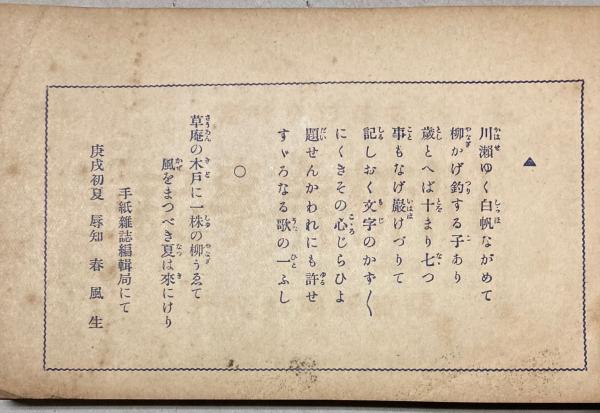 川瀨ゆく白帆ながめて
柳かげ釣する子あり
歲とへば十まり七つ
事もなげ巖けづりて
記しおく文字のかず〱
にくきその心じらひよ
題せんかわれにも許せ
すゞろなる歌の一ふし
○
草庵の木戶に一株の柳うゑて
風をまつべき夏は來にけり
手紙雜誌編輯局にて
庚戌初夏 辱知 春風生